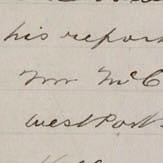 his report
Wm McC
Westport